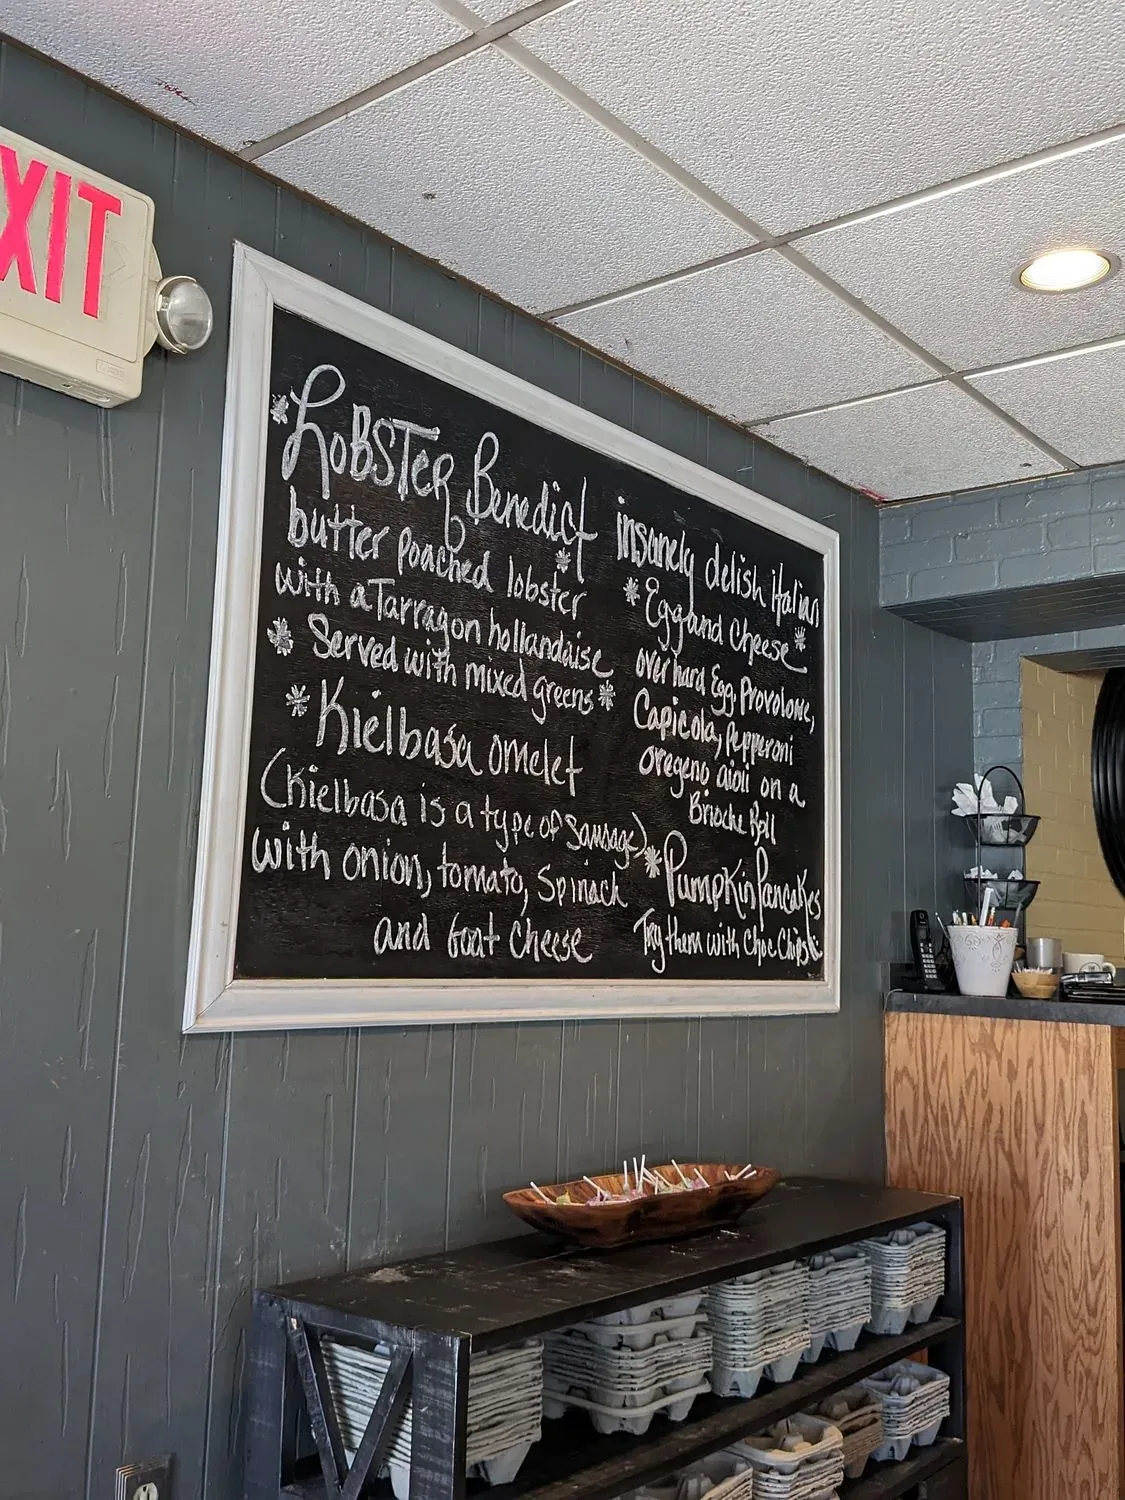 EXIT
LOBSTER Benedict
butter poached lobster
with a Tarragon hollandaise
Served with mixed greens
Kielbasa omelet
(Kielbasa is a type of Sausage)
with onion, tomato, Spinach
and Goat Cheese
insanely delish italian
Egg and Cheese
over hard Egg, Provolone,
Capicola, Pepperoni
oregeno aioli on a
Brioche Roll
Pumpkin Pancakes
Try them with Choc. Chips